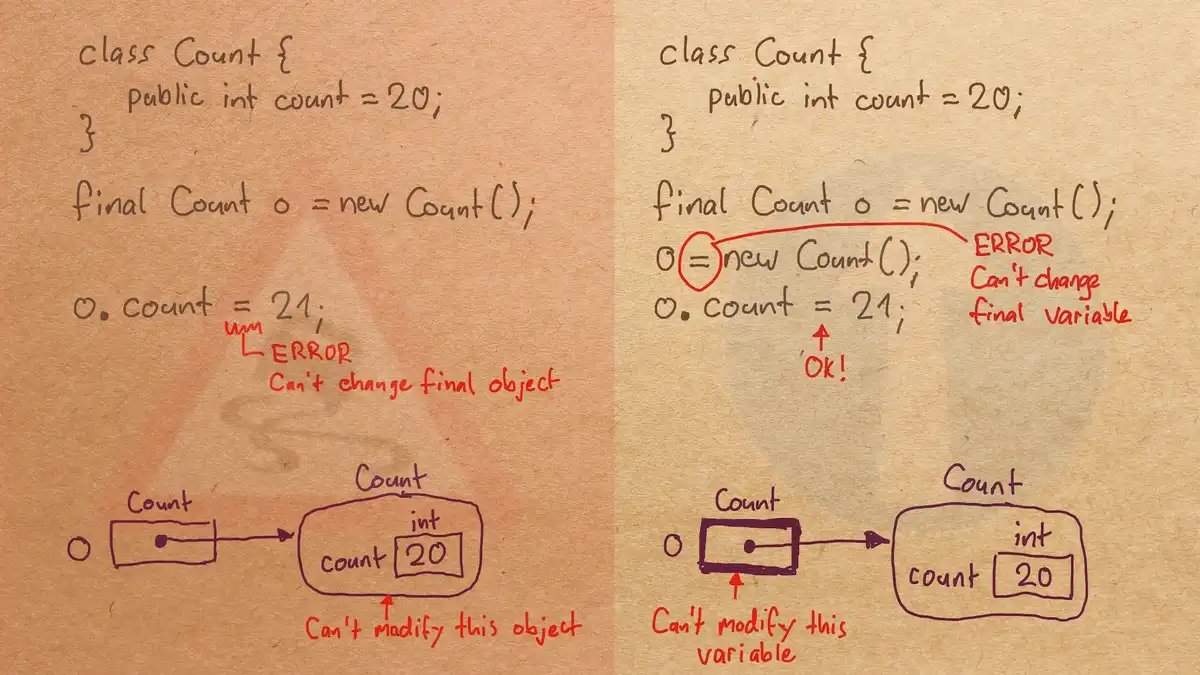 class Count {
public int count = 20;
}
final Count o = new Count();
o.count = 21;
ERROR
Can't change final object
Count
Count
o
int
count 20
Can't modify this object
class Count {
public int count = 20;
}
final Count o = new Count();
o = new Count();
ERROR
Can't change
final variable
o.count = 21;
Ok!
Count
Count
o
int
count 20
Can't modify this
variable